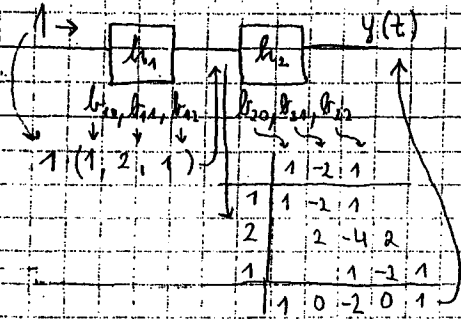 1 → h₁ h₂ y(t)
b₁₀, b₁₁, b₁₂ b₂₀, b₂₁, b₂₂
1 · (1, 2, 1) 1 -2 1
1 1 -2 1
2 2 -4 2
1 1 -2 1
1 0 -2 0 1